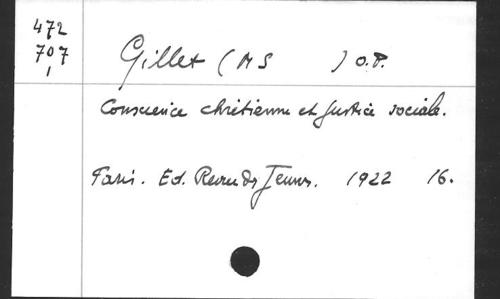 472
707
1
Gillet (M S ) O.P.
Conscience chrétienne et Justice sociale.
Paris. Ed. Revue des Jeunes. 1922 16.